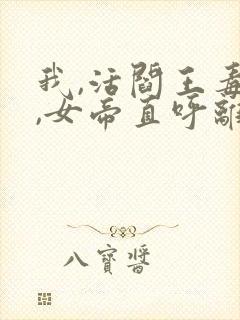 我,活閻王毒
,女帝直呼離
八寶醬